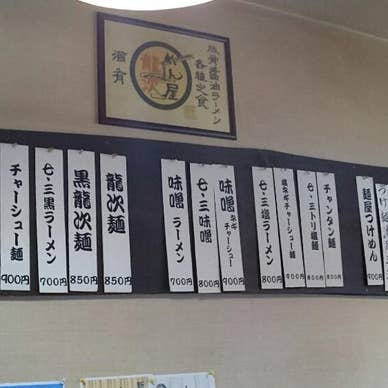 豚骨醤油ラーメン
各種定食
めん屋
龍次
酒肴
麺屋つけめん
900円
チャンタン麺
800円
七・三トリ塩麺
800円
塩ネギチャーシュー麺
900円
七・三塩ラーメン
800円
味噌ネギチャーシュー
900円
七・三味噌
800円
味噌ラーメン
700円
龍次麺
850円
黒龍次麺
850円
七・三黒ラーメン
700円
チャーシュー麺
900円